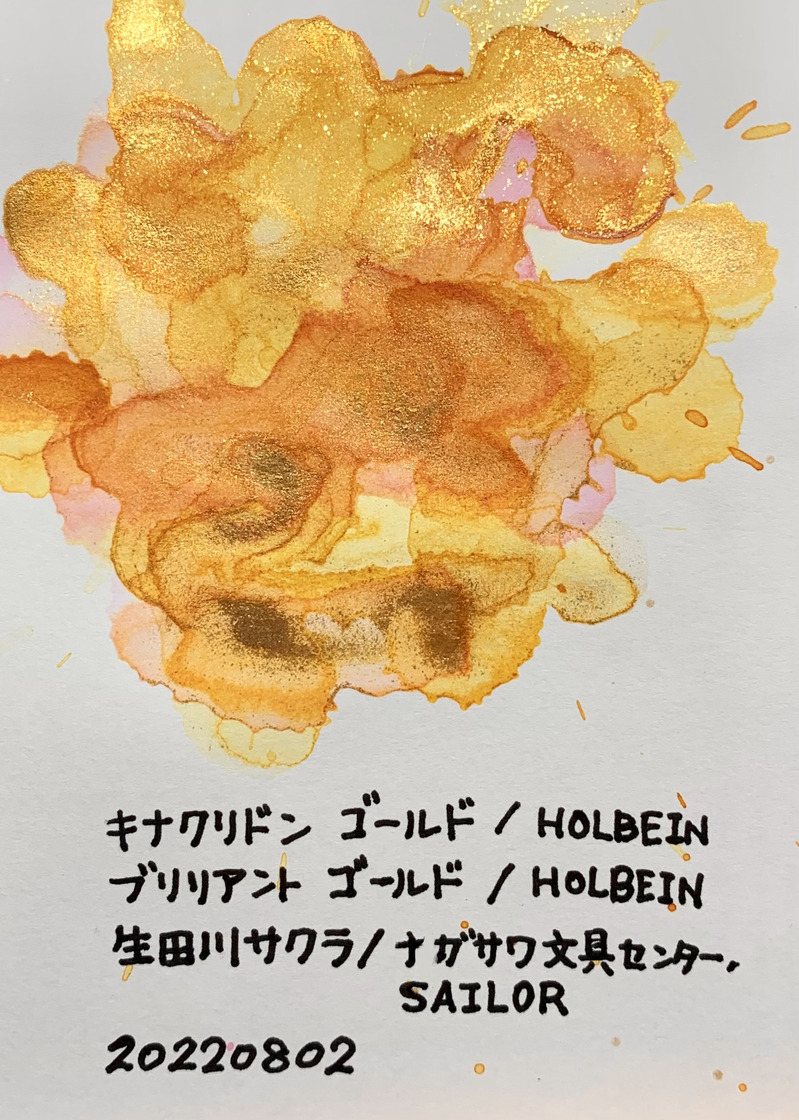 キナクリドン ゴールド / HOLBEIN
ブリリアント ゴールド / HOLBEIN
生田川サクラ/ナガサワ文具センター,
SAILOR
20220802